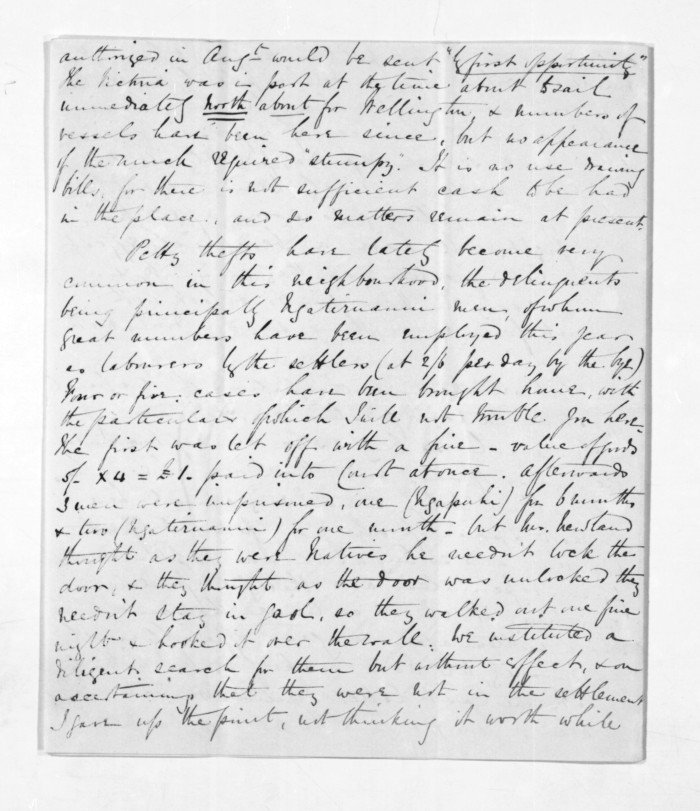 authorized in Augt. would be sent "by first opportunity"
The Victoria was in port at the time about to sail
immediately north about for Wellington, & numbers of
vessels have been here since, but no appearance
of the much required "stumpy". It is no use drawing
bills, for there is not sufficient cash to be had
in the place., and so matters remain at present.
Petty thefts have lately become very
common in this neighbourhood, the delinquents
being principally Ngatiruanui men, of whom
great numbers have been employed this year
as labourers by the settlers (at 2/6 per day, by the bye)
Four or five cases have been brought home, with
the particulars of which I will not trouble you here
The first was let off with a fine - value of goods
5/- x 4 = £1 - paid into Court at once. Afterwards
3 men were imprisoned, one (Ngapuhi) for 6 months
& two (Ngatiruanui) for one month - but Mr. Newland
thought as they were Natives he needn't lock the
door, & they thought as the door was unlocked they
needn't stay in gaol, so they walked out one fine
night & hooked it over the wall. We instituted a
diligent search for them but without effect, & on
ascertaining that they were not in the settlement
I gave up the pursuit, not thinking it worth while